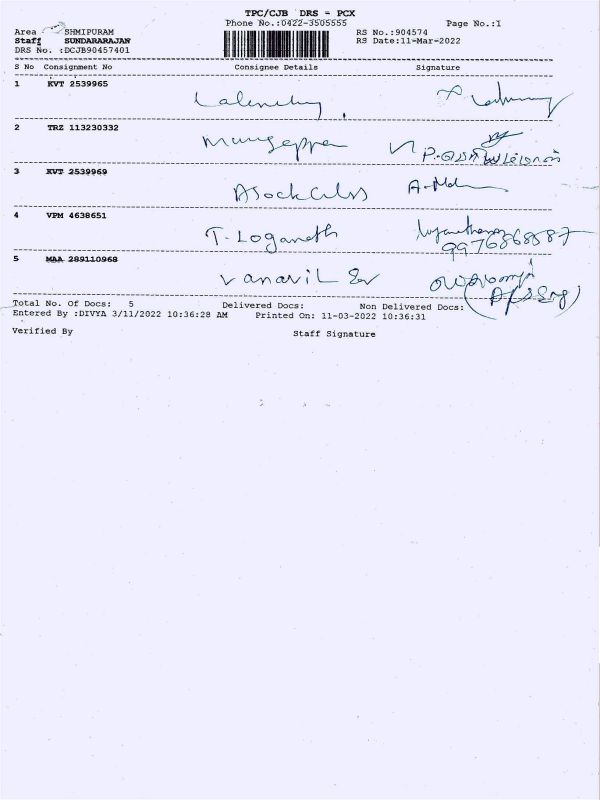 TPC/CJB DRS - PCX
Phone No.:0422-3505555 Page No.:1
Area SHMIPURAM RS No.:904574
Staff SUNDARARAJAN RS Date:11-Mar-2022
DRS No. :DCJB90457401
S No Consignment No Consignee Details Signature
1 KVT 2539965
2 TRZ 113230332
3 KVT 2539969
4 VPM 4638651 T. Loganath
9976868587
5 MAA 289110968
Total No. Of Docs: 5 Delivered Docs: Non Delivered Docs:
Entered By :DIVYA 3/11/2022 10:36:28 AM Printed On: 11-03-2022 10:36:31
Verified By Staff Signature